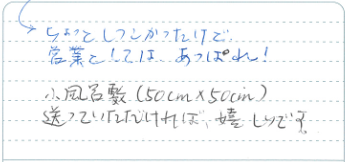 ちょっとしつこかったけど、
営業としては、あっぱれ!
小風呂敷(50cm×50cm)
送っていただければ、嬉しいです。